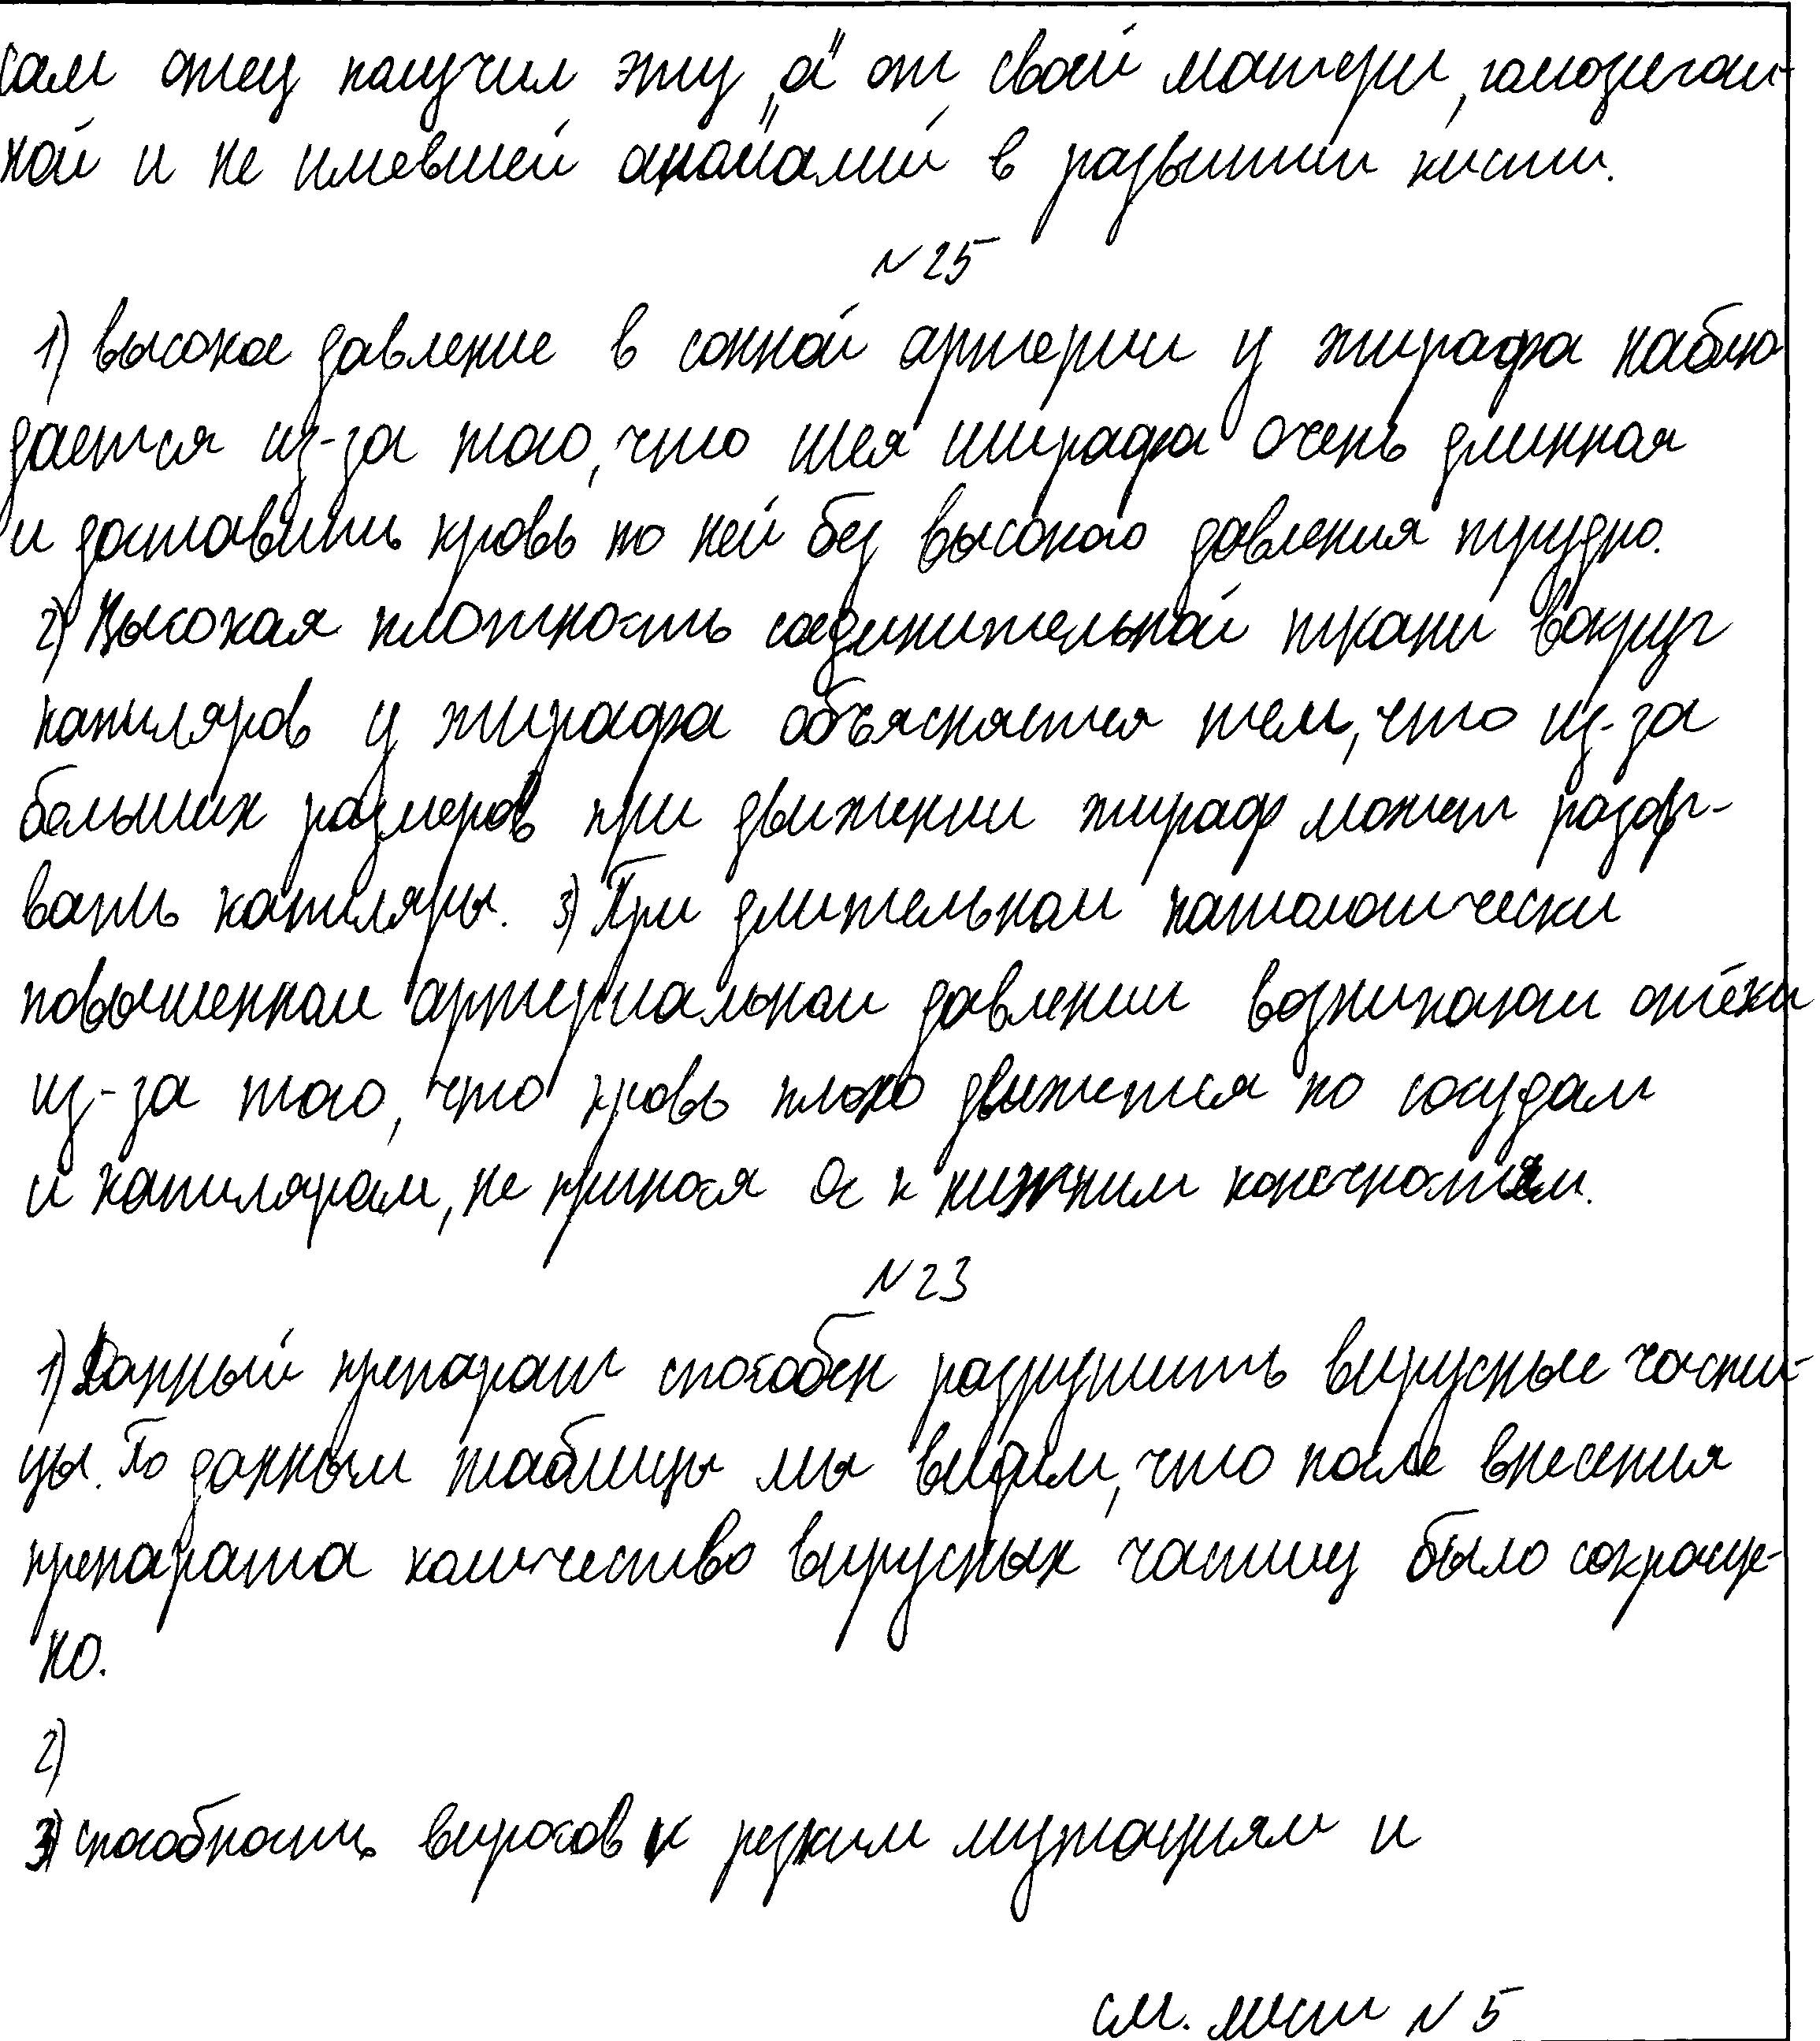 сам отец получил эту „а" от своей матери, гомозигот-
ной и не имевшей аномалий в развитии кисти.
№ 25
1) высокое давление в сонной артерии у жирафа наблю-
дается из-за того, что шея жирафа очень длинная
и доставить кровь по ней без высокого давления трудно.
2) Высокая плотность соединительной ткани вокруг
капиляров у жирафа объясняется тем, что из-за
больших размеров при движении жираф может разор-
вать капиляры. 3) При длительном патологически
повышенном артериальном давлении возникают отёки
из-за того, что кровь плохо движется по сосудам
и капилярам, не принося O₂ к нижним конечностям.
№ 23
1) Данный препарат способен разрушить вирусные части-
цы. По данным таблицы мы видим, что после внесения
препарата количество вирусных частиц было сокраще-
но.
2)
3) способность виросов к резким мутациям и
см. лист № 5